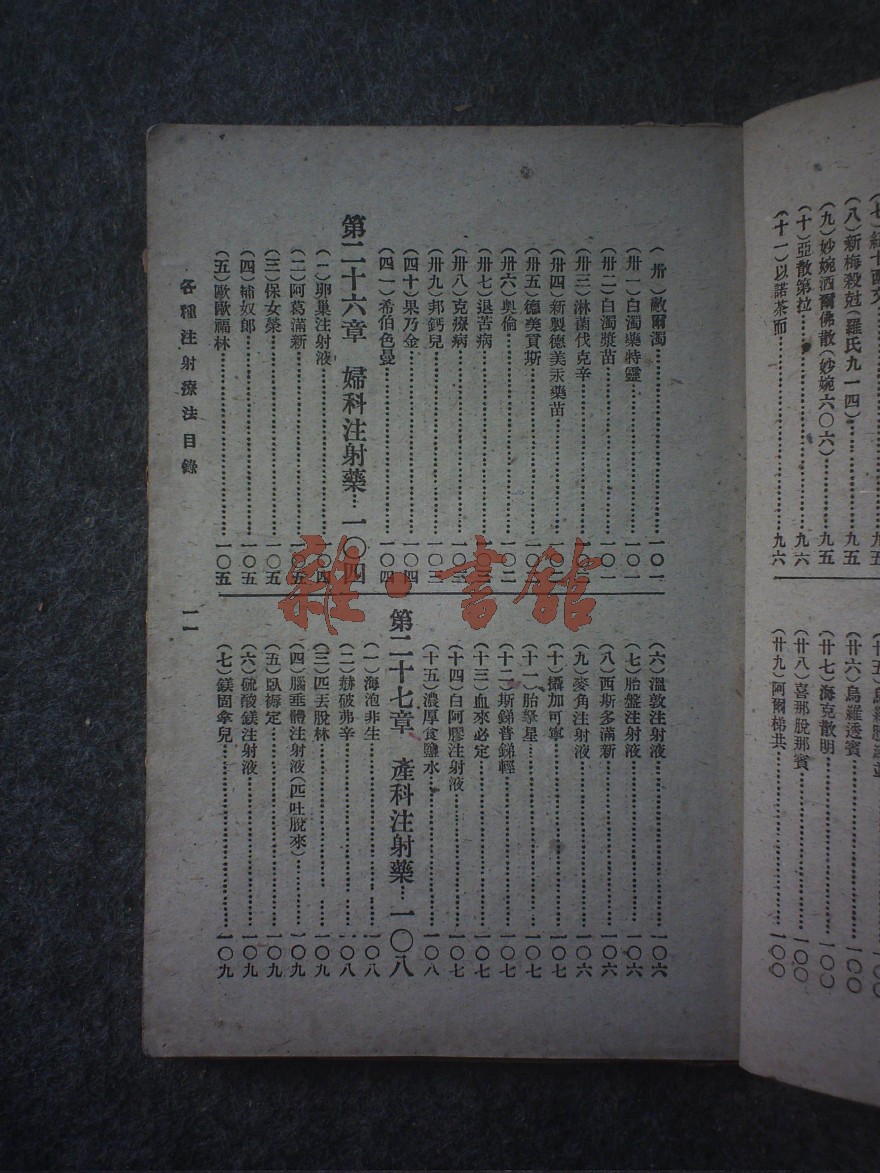 (八)新梅殺尅(羅氏九一四)……九五
(九)妙婉洒爾佛散(妙婉六〇六)……九五
(十)亞散第拉……九六
(十一)以諾茶而……九六
(廿六)烏羅透賓……一〇〇
(廿七)海克散明……一〇〇
(廿八)喜那脫那賓……一〇〇
(廿九)阿爾梯共……一〇〇
(卅)敵爾濁……一〇一
(卅一)白濁藥特靈……一〇一
(卅二)白濁漿苗……一〇一
(卅三)淋菌伐克辛
(卅四)新製德美汞藥苗
(卅五)德美賁斯
(卅六)奧倫……一〇二
(卅七)退苦病
(卅八)克療病
(卅九)邦鈣兒……一〇三
(四十)果乃金……一〇四
(四一)希伯色曼……一〇四
第二十六章 婦科注射藥…一〇四
(一)卵巢注射液……一〇四
(二)阿葛滿新……一〇五
(三)保女榮……一〇五
(四)補奴郎……一〇五
(五)歐歐福林……一〇五
(六)溫敦注射液……一〇六
(七)胎盤注射液……一〇六
(八)西斯多滿新……一〇六
(九)麥角注射液……一〇六
(十)攝加可寧……一〇七
(十一)胎擊星……一〇七
(十二)斯銻普銻輕……一〇七
(十三)血來必定……一〇七
(十四)白阿膠注射液……一〇七
(十五)濃厚食鹽水……一〇八
第二十七章 產科注射藥…一〇八
(一)海泡非生……一〇八
(二)赫破弗辛……一〇八
(三)匹丟脫林……一〇九
(四)腦垂體注射液(匹吐脫來)……一〇九
(五)臥褥定……一〇九
(六)硫酸鎂注射液……一〇九
(七)鎂固拿兒……一〇九
各種注射療法目錄
一一
雜·書館